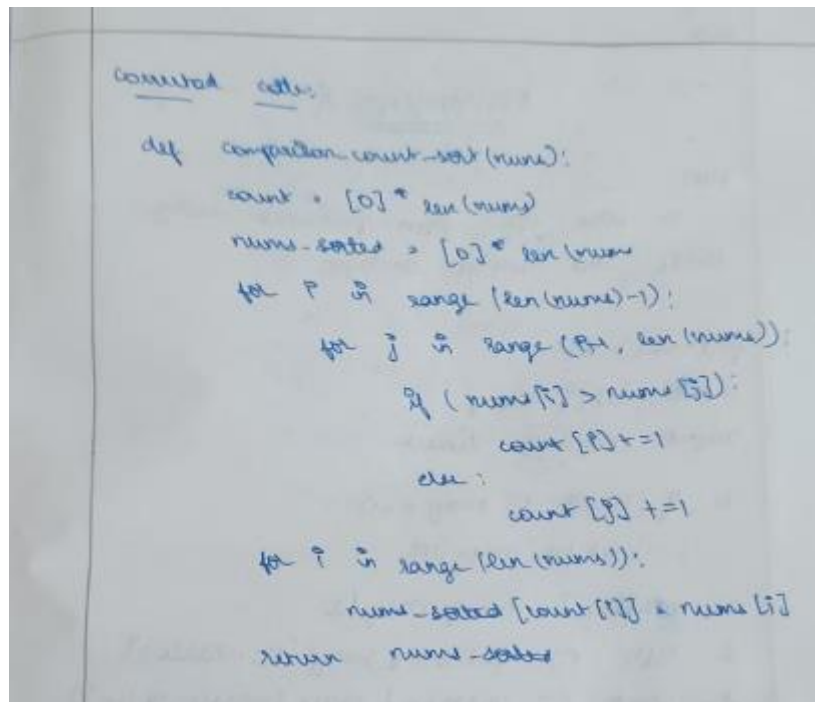 corrected code:
def comparison-count-sort(nums):
count = [0] * len(nums)
nums-sorted = [0] * len(nums
for i in range (len(nums)-1):
for j in range (i+1, len(nums)):
if (nums[i] > nums[j]):
count [i] += 1
else:
count [j] += 1
for i in range (len(nums)):
nums-sorted [count [i]] = nums [i]
return nums-sorted